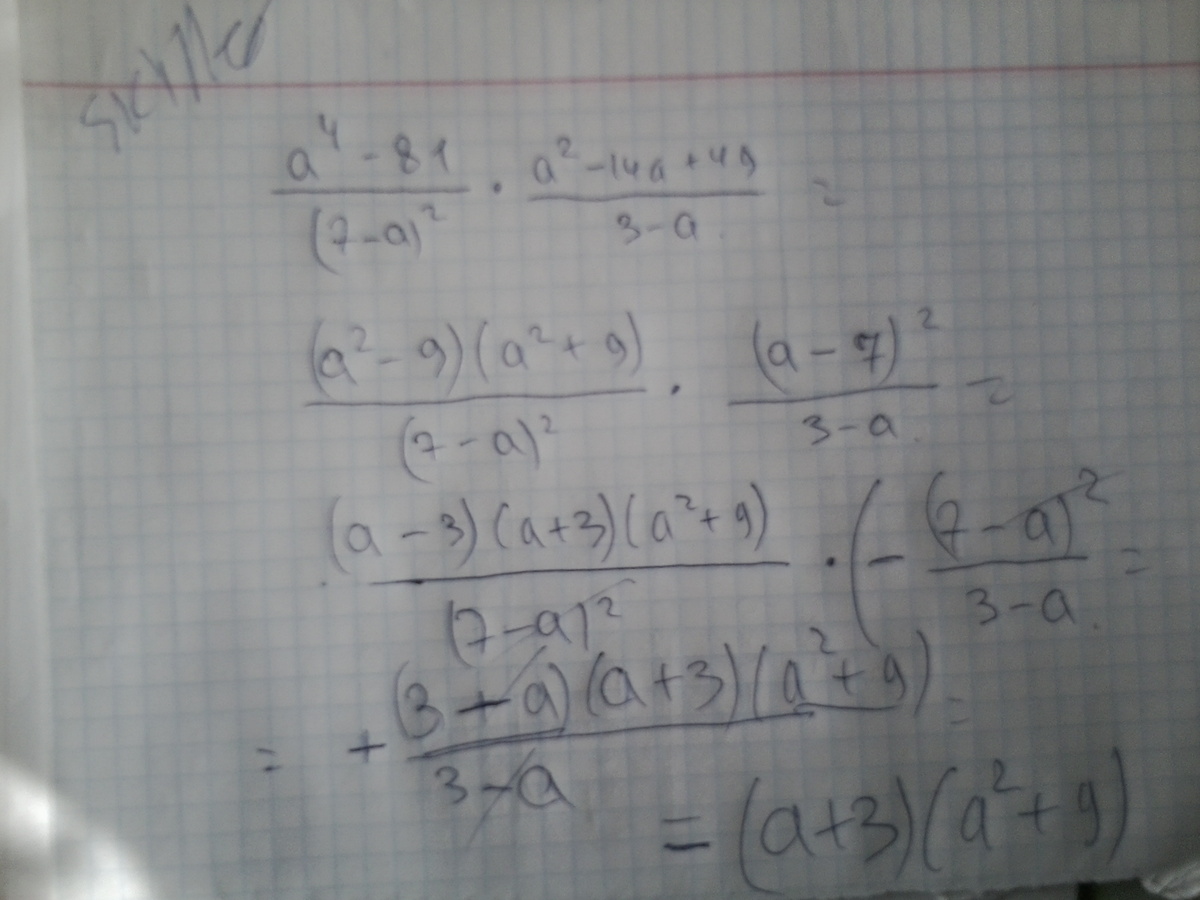 skilled
(a^4 - 81)/((7-a)^2) · (a^2 - 14a + 49)/(3-a) =
((a^2 - 9)(a^2 + 9))/((7-a)^2) · ((a-7)^2)/(3-a) =
((a-3)(a+3)(a^2+9))/((7-a)^2) · (- ((7-a)^2)/(3-a) =
= + ((3-a)(a+3)(a^2+9))/(3-a) =
= (a+3)(a^2+9)